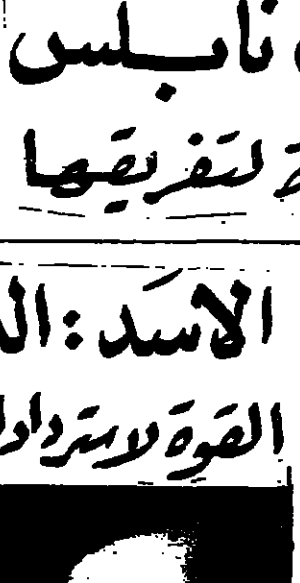 نابلس
لتفريقها
الاسد : ال
القوة لاسترداد